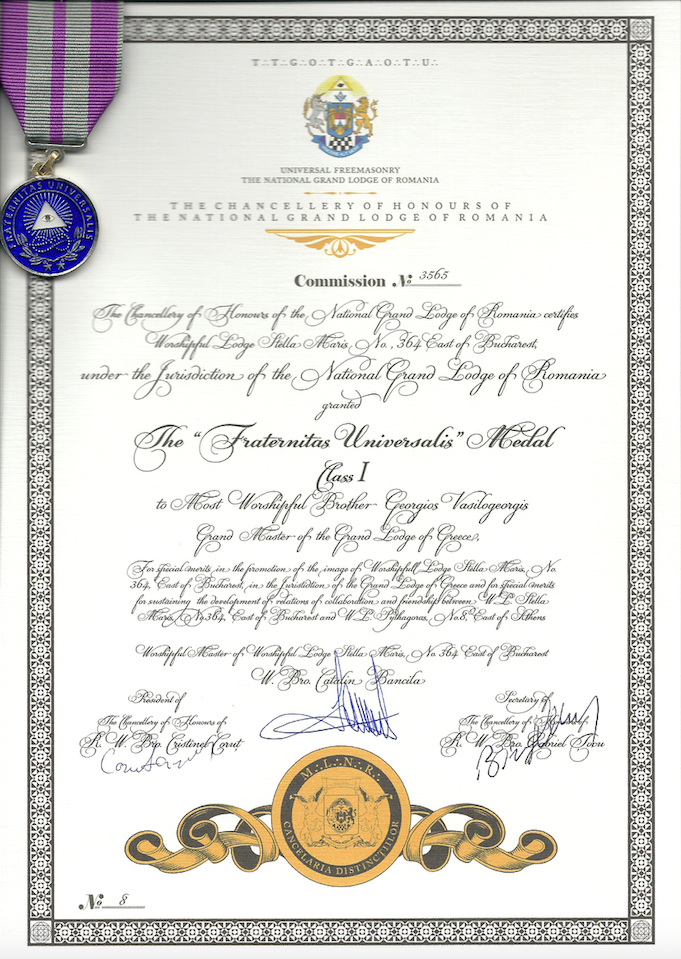 T∴T∴G∴O∴T∴G∴A∴O∴T∴U∴
UNIVERSAL FREEMASONRY
THE NATIONAL GRAND LODGE OF ROMANIA
THE CHANCELLERY OF HONOURS OF
THE NATIONAL GRAND LODGE OF ROMANIA
FRATERNITAS UNIVERSALIS
Commission No 3565
The Chancellery of Honours of the National Grand Lodge of Romania certifies
Worshipful Lodge Stella Maris, No. 364 East of Bucharest,
under the Jurisdiction of the National Grand Lodge of Romania
granted
The "Fraternitas Universalis" Medal
Class I
to Most Worshipful Brother Georgios Vasilogeorgis
Grand Master of the Grand Lodge of Greece,
For special merits in the promotion of the image of Worshipfull Lodge Stella Maris, No.
364, East of Bucharest, in the Jurisdiction of the Grand Lodge of Greece and for special merits
for sustaining the development of relations of collaboration and friendship between W.L. Stella
Maris, No.364, East of Bucharest and W.L. Pythagoras, No.8, East of Athens
Worshipful Master of Worshipful Lodge Stella Maris, No. 364 East of Bucharest
W. Bro. Catalin Bancila
President of
The Chancellery of Honours of
R. W. Bro. Cristinel Corut
Secretary of
The Chancellery of Honours of
R. W. Bro. Gabriel
M∴L∴N∴R∴
CANCELARIA DISTINCTIILOR
No 8